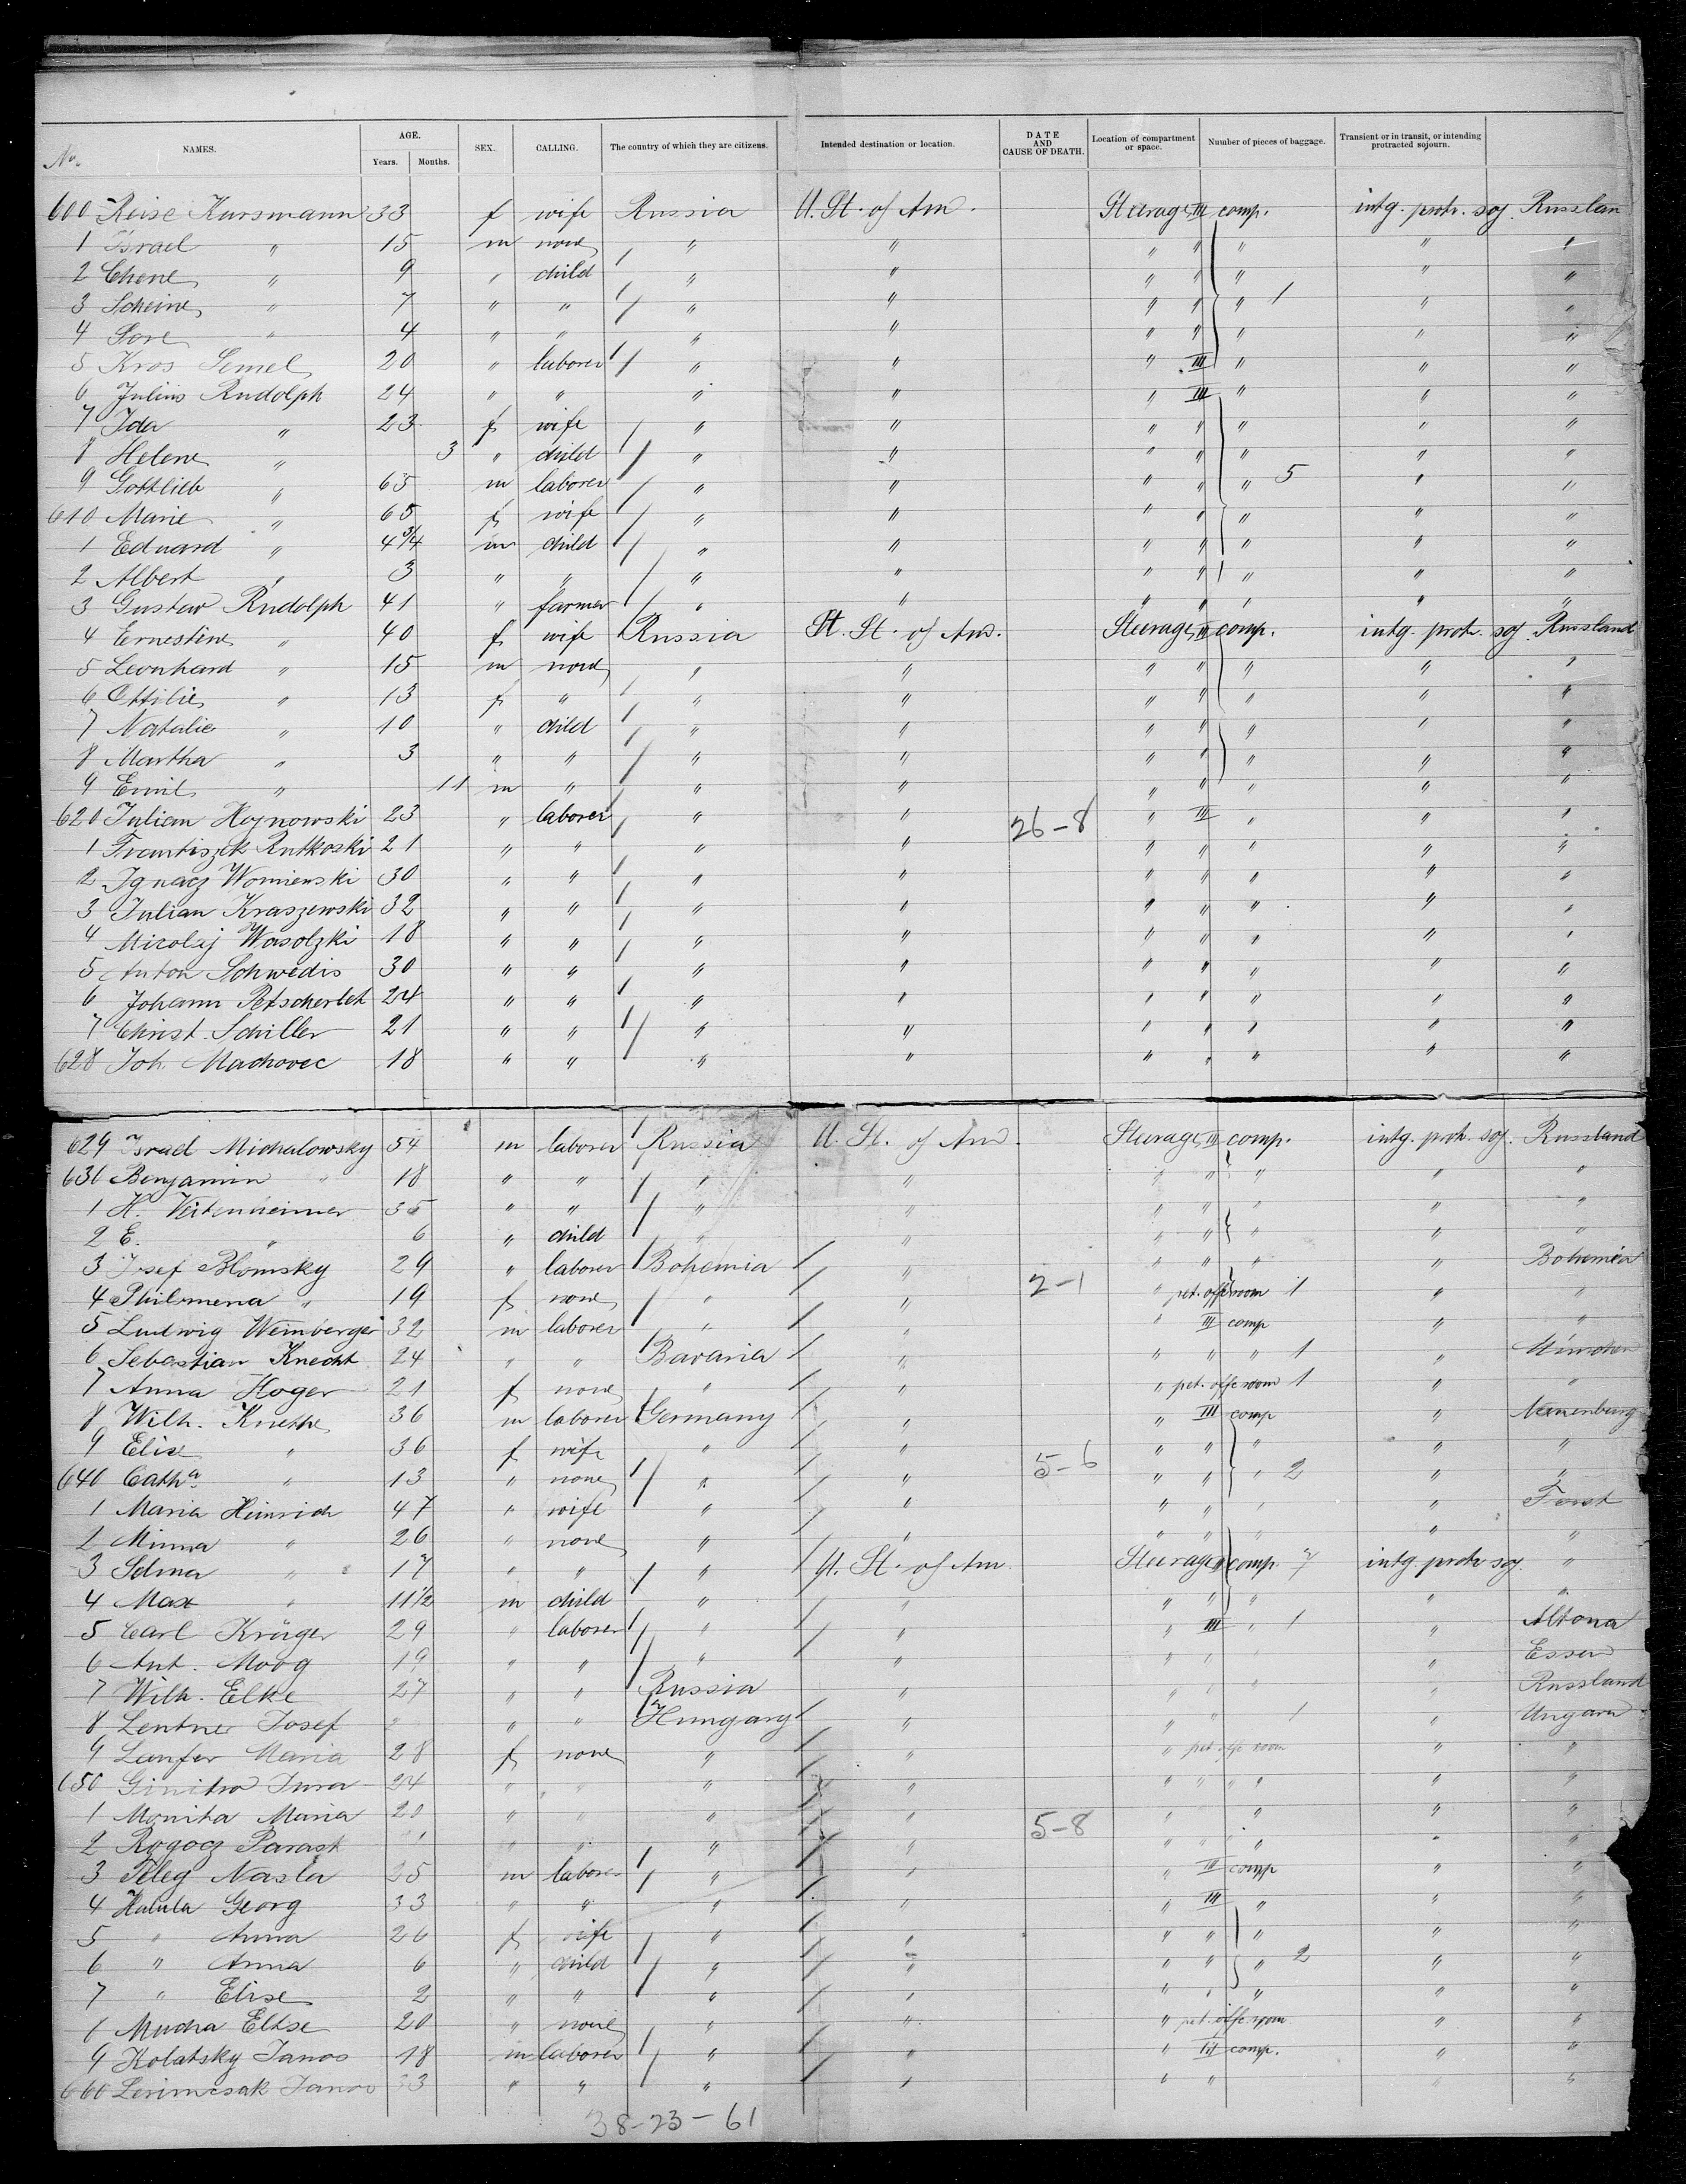 No. NAMES. AGE. Years. Months. SEX. CALLING. The country of which they are citizens. Intended destination or location. DATE AND CAUSE OF DEATH. Location of compartment or space. Number of pieces of baggage. Transient or in transit, or intending protracted sojourn.
600 Reise Kursmann 33 f wife Russia U. St. of Am. Steerage III comp. intg. protr. soj. Russlan
1 Israel " 15 m none " " " " " " "
2 Chene " 9 " child " " " " " " "
3 Scheine " 7 " " " " " " " 1 " "
4 Sore " 4 " " " " " " " " "
5 Kros Semel 20 " laborer " " " III " " "
6 Julius Rudolph 24 " " " " " III " " "
7 Ida " 23 f wife " " " " " " "
8 Helene " 3 " child " " " " " " "
9 Gottlieb " 65 m laborer " " " " " 5 " "
610 Marie " 65 f wife " " " " " " "
1 Eduard " 4 3/4 m child " " " " " " "
2 Albert " 3 " " " " " " " " "
3 Gustav Rudolph 41 " farmer " " " " " " "
4 Ernestine " 40 f wife Russia St. St. of Am. Steerage III comp. intg. protr. soj. Russland
5 Leonhard " 15 m none " " " " " " "
6 Ottilie " 13 f " " " " " " " "
7 Natalie " 10 " child " " " " " " "
8 Martha " 3 " " " " " " " " "
9 Emil " 11 m " " " " " " " "
620 Julian Hojnowski 23 " laborer " " 26-8 " III " " "
1 Frantiszek Rutkoski 21 " " " " " " " " "
2 Ignacz Womienski 30 " " " " " " " " "
3 Julian Kraszewski 32 " " " " " " " " "
4 Micolaj Wasolzki 18 " " " " " " " " "
5 Anton Schwedis 30 " " " " " " " " "
6 Johann Petscherlet 24 " " " " " " " " "
7 Christ. Schiller 21 " " " " " " " " "
628 Joh. Machovec 18 " " " " " " " " "
629 Israel Michalowsky 54 m laborer Russia U. St. of Am. Steerage III comp. intg. protr. soj. Russland
630 Benjamin " 18 " " " " " " " " "
1 H. Veitenheimer 35 " " " " " " " " "
2 E. " 6 " child " " " " " " "
3 Josef Blömsky 29 " laborer Bohemia " " " " " Bohemia
4 Philomena " 19 f none " " 2-1 " pet. offc room 1 " "
5 Ludwig Weinberger 32 m laborer " " " III comp " "
6 Sebastian Knecht 24 " " Bavaria " " " " 1 " München
7 Anna Hoger 21 f none " " " pet. offc room 1 " "
8 Wilh. Knethe 36 m laborer Germany " " III comp "
9 Elise " 36 f wife " " " " " " "
640 Catha. " 13 " none " " 5-6 " " " 2 " "
1 Maria Heinrich 47 " wife " " " " " " Forst
2 Minna " 26 " none " " " " " " "
3 Selma " 17 " " " U. St. of Am. Steerage III comp. 7 intg. protr soj. "
4 Max " 11 1/2 m child " " " " " " "
5 Carl Krüger 29 " laborer " " " III " 1 " Altona
6 Ant. Moog 19 " " " " " " " " Essen
7 Wilh. Elke 27 " " Russia " " " " " Russland
8 Lentner Josef " " Hungary " " " 1 " Ungarn
9 Laufer Maria 28 f none " " " pet. offc room " "
650 24 " " " " " " " " " "
1 Monita Maria 20 " " " " " " " "
2 Rogocz Parast " " " " 5-8 " " " " " "
3 Peleg Nasla 25 m laborer " " " III comp " "
4 Halula Georg 33 " " " " " III " " "
5 " Anna 26 f wife " " " " " " "
6 " Anna 6 " child " " " " " 2 " "
7 " Elise 2 " " " " " " " " "
8 Mucha Elise 20 " none " " " pet. offc room " "
9 Kolatsky Janos 18 m laborer " " " III comp. " "
660 Janos 33 " " " " " " " "
38-23-61